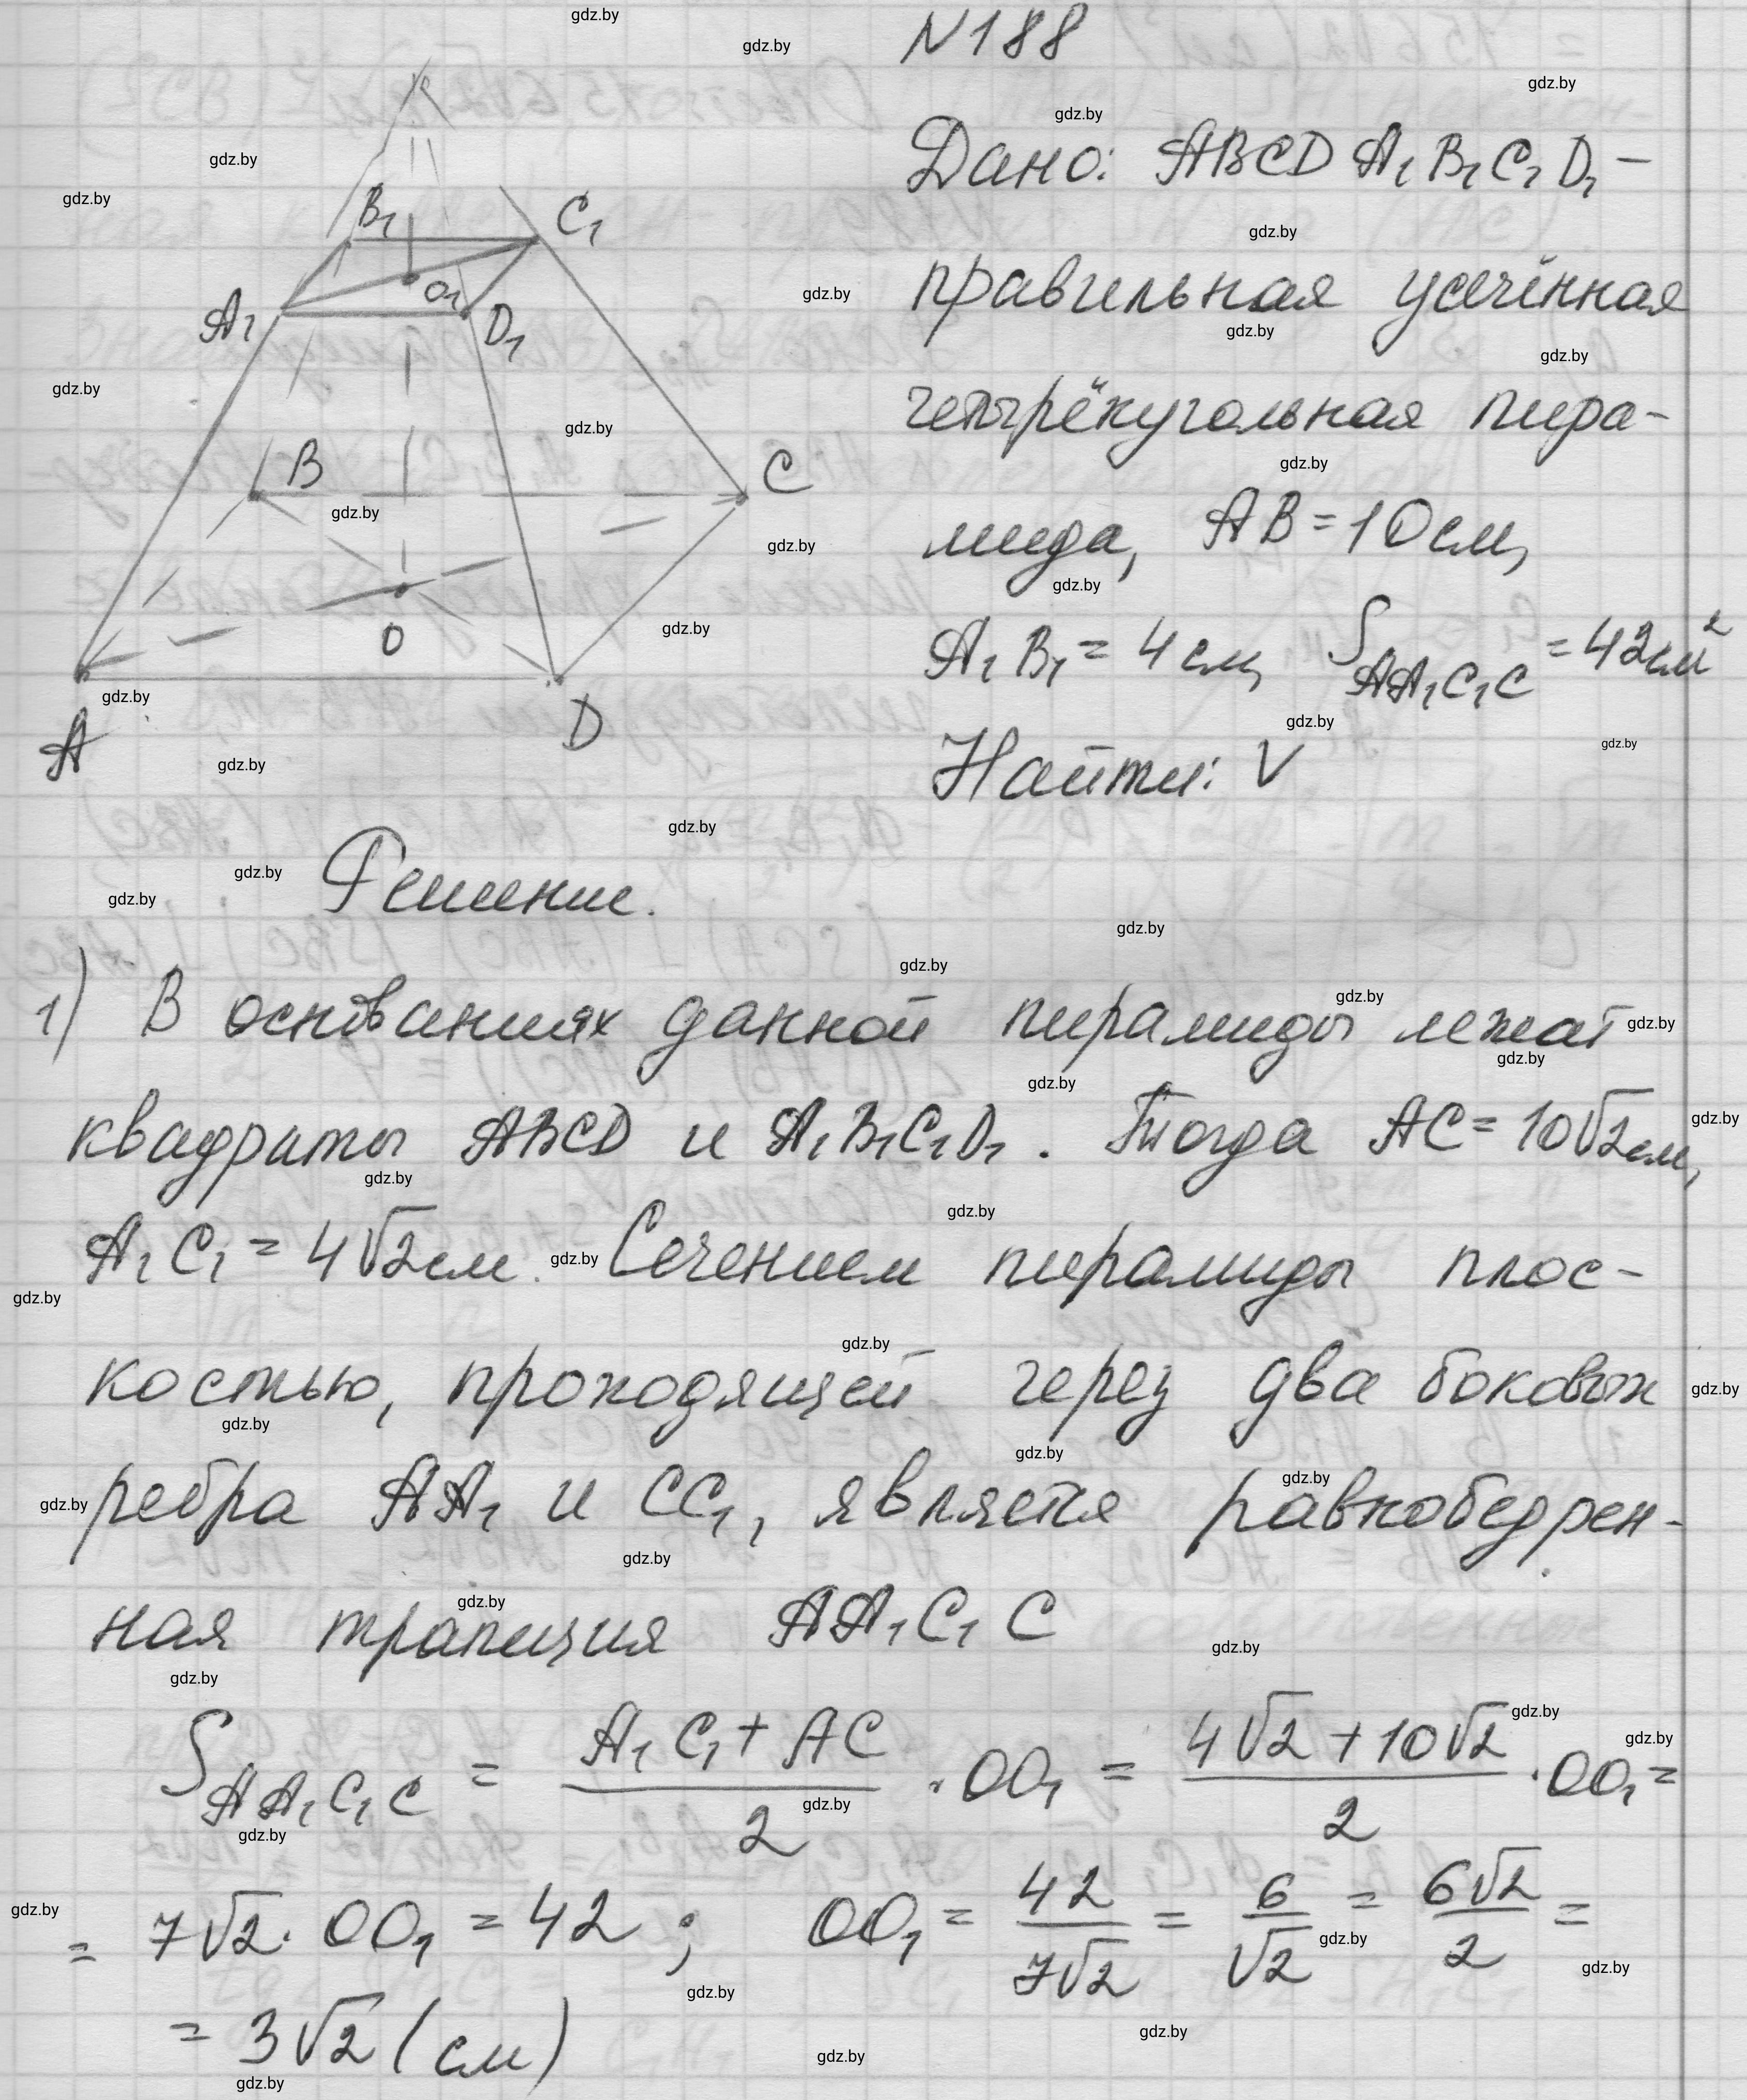 N188
Дано: ABCDA₁B₁C₁D₁ –
правильная усечённая
четырёхугольная пира-
мида, AB = 10 см,
A₁B₁ = 4 см, S_{AA₁C₁C} = 42 см²
Найти: V
B₁
C₁
O₁
A₁
D₁
B
C
O
A
D
Решение.
1) В основаниях данной пирамиды лежат
квадраты ABCD и A₁B₁C₁D₁. Тогда AC = 10√2 см,
A₁C₁ = 4√2 см. Сечением пирамиды плос-
костью, проходящей через два боковых
ребра AA₁ и CC₁, является равнобедрен-
ная трапеция AA₁C₁C
S_{AA₁C₁C} = (A₁C₁ + AC)/2 · OO₁ = (4√2 + 10√2)/2 · OO₁ =
= 7√2 · OO₁ = 42 ; OO₁ = 42/(7√2) = 6/√2 = 6√2/2 =
= 3√2 (см)
gdz.by